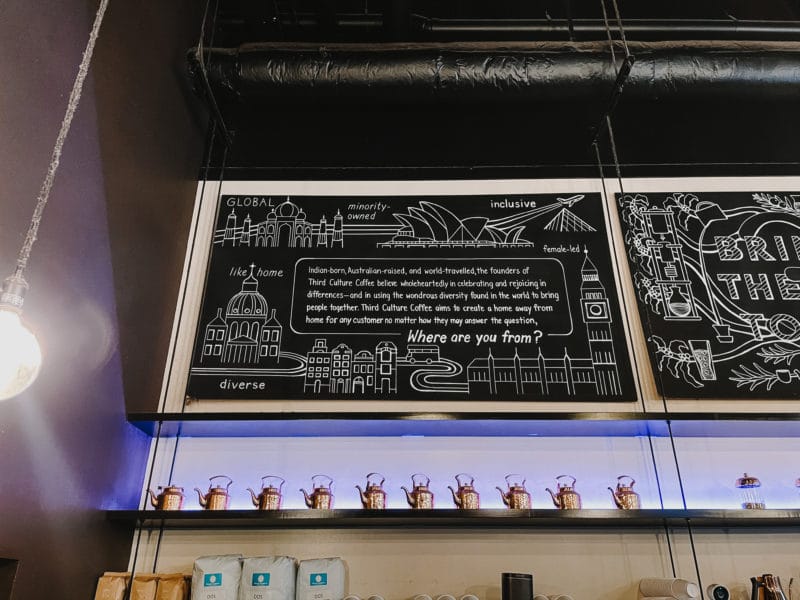 GLOBAL
minority-
owned
inclusive
female-led
like home
Indian-born, Australian-raised, and world-travelled, the founders of
Third Culture Coffee believe wholeheartedly in celebrating and rejoicing in
differences—and in using the wondrous diversity found in the world to bring
people together. Third Culture Coffee aims to create a home away from
home for any customer no matter how they may answer the question,
Where are you from?
diverse
THE